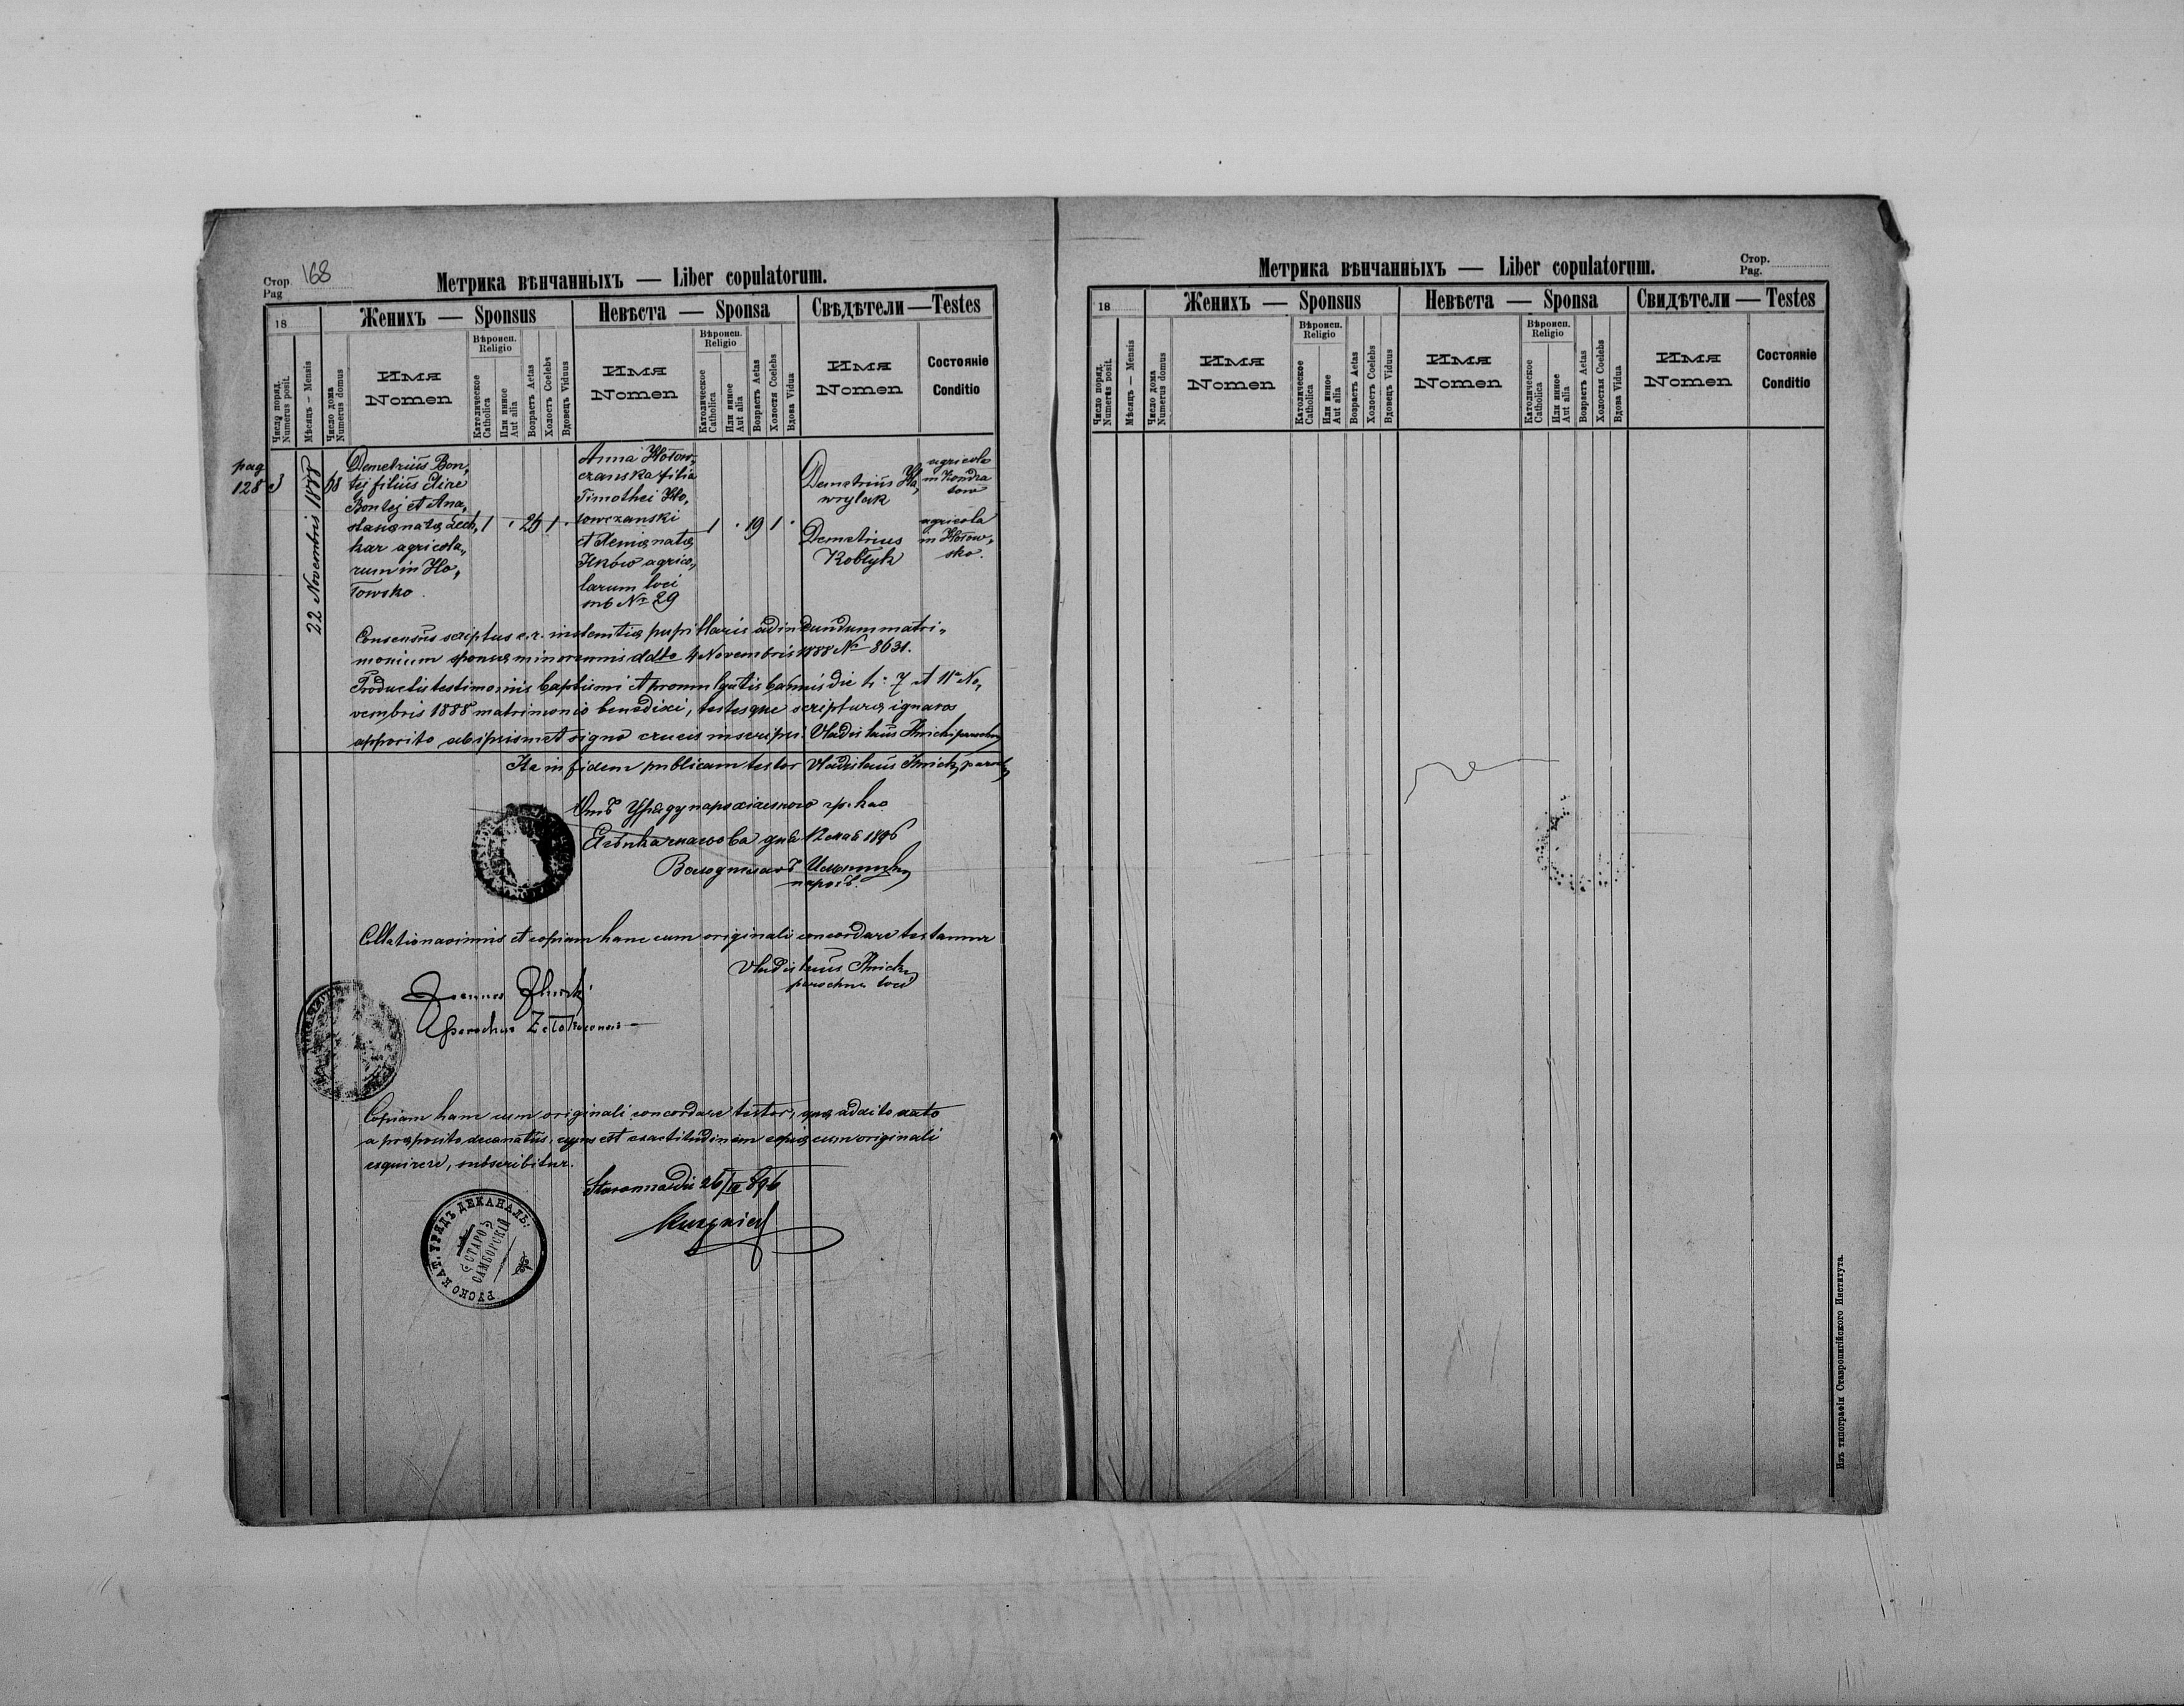 Стор.
Pag
168
Метрика вѣнчанныхъ — Liber copulatorum.
18
Женихъ — Sponsus
Невѣста — Sponsa
Свѣдѣтели — Testes
Число поряд.
Numerus posit.
Мѣсяцъ — Mensis
Число дома
Numerus domus
Имя
Nomen
Вѣроисп.
Religio
Католическое
Catholica
Или иное
Aut alia
Возрастъ Aetas
Холостъ Coelebs
Вдовецъ Viduus
Имя
Nomen
Вѣроисп.
Religio
Католическое
Catholica
Или иное
Aut alia
Возрастъ Aetas
Холостя Coelebs
Вдова Vidua
Имя
Nomen
Состояніе
Conditio
pag
128
3
22 Novembris 1888
Demetrius Bon„
tej filius
Bontej et Ana„
stasiæ natæ Lech„
har agricola„
rum in Ho„
łowsko.
1 . 25 1 .
Anna Hołow„
czanska filia
Timothei Ho„
łowczanski
et Xeniæ natæ
Ilków agrico„
larum loci
sub Nr 29
1 . 19 1 .
Demetrius Ha„
wrylak
agricola
in Kondra
tow
Demetrius
Kobłyk
agricola
in Hołow„
sko.
Consensus scriptus c. r. instantiæ pupillaris ad ineundum matri„
monium sponsæ minorennis ddto 4 Novembris 1888 Nr 8631.
Productis testimoniis baptismi et promulgatis bannis die 4. 7 et 11a No„
vembris 1888 matrimonio benedixi, testesque scripturæ ignaros
apposito ab ipsismet signo crucis inscripsi. Vladislaus parochus
Ita in fidem publicam testor Vladislaus parochus
Отъ Уряду парохіяльного гр. кат
дня 12 мая 1896
парохъ.
Collationavimus et copiam hanc cum originali concordare testamur
Vladislaus
parochus loci
Joannes
parochus
Copiam hanc cum originali concordare testor, qua addito nato
a præposito decanatus, cujus est exactitudinem copiæ cum originali
exquirere, subscribitur.
26/IX 896
РУСКО КАТ. УРЯДЪ ДЕКАНАЛЬ:
СТАРО-
САМБОРСКІЙ
Метрика вѣнчанныхъ — Liber copulatorum.
Стор.
Pag.
18
Женихъ — Sponsus
Невѣста — Sponsa
Свидѣтели — Testes
Число поряд.
Numerus posit.
Мѣсяцъ — Mensis
Число дома
Numerus domus
Имя
Nomen
Вѣроисп.
Religio
Католическое
Catholica
Или иное
Aut alia
Возрастъ Aetas
Холостъ Coelebs
Вдовецъ Viduus
Имя
Nomen
Вѣроисп.
Religio
Католическое
Catholica
Или иное
Aut alia
Возрастъ Aetas
Холостая Coelebs
Вдова Vidua
Имя
Nomen
Состояніе
Conditio
Изъ типографіи Ставропигійского Института.